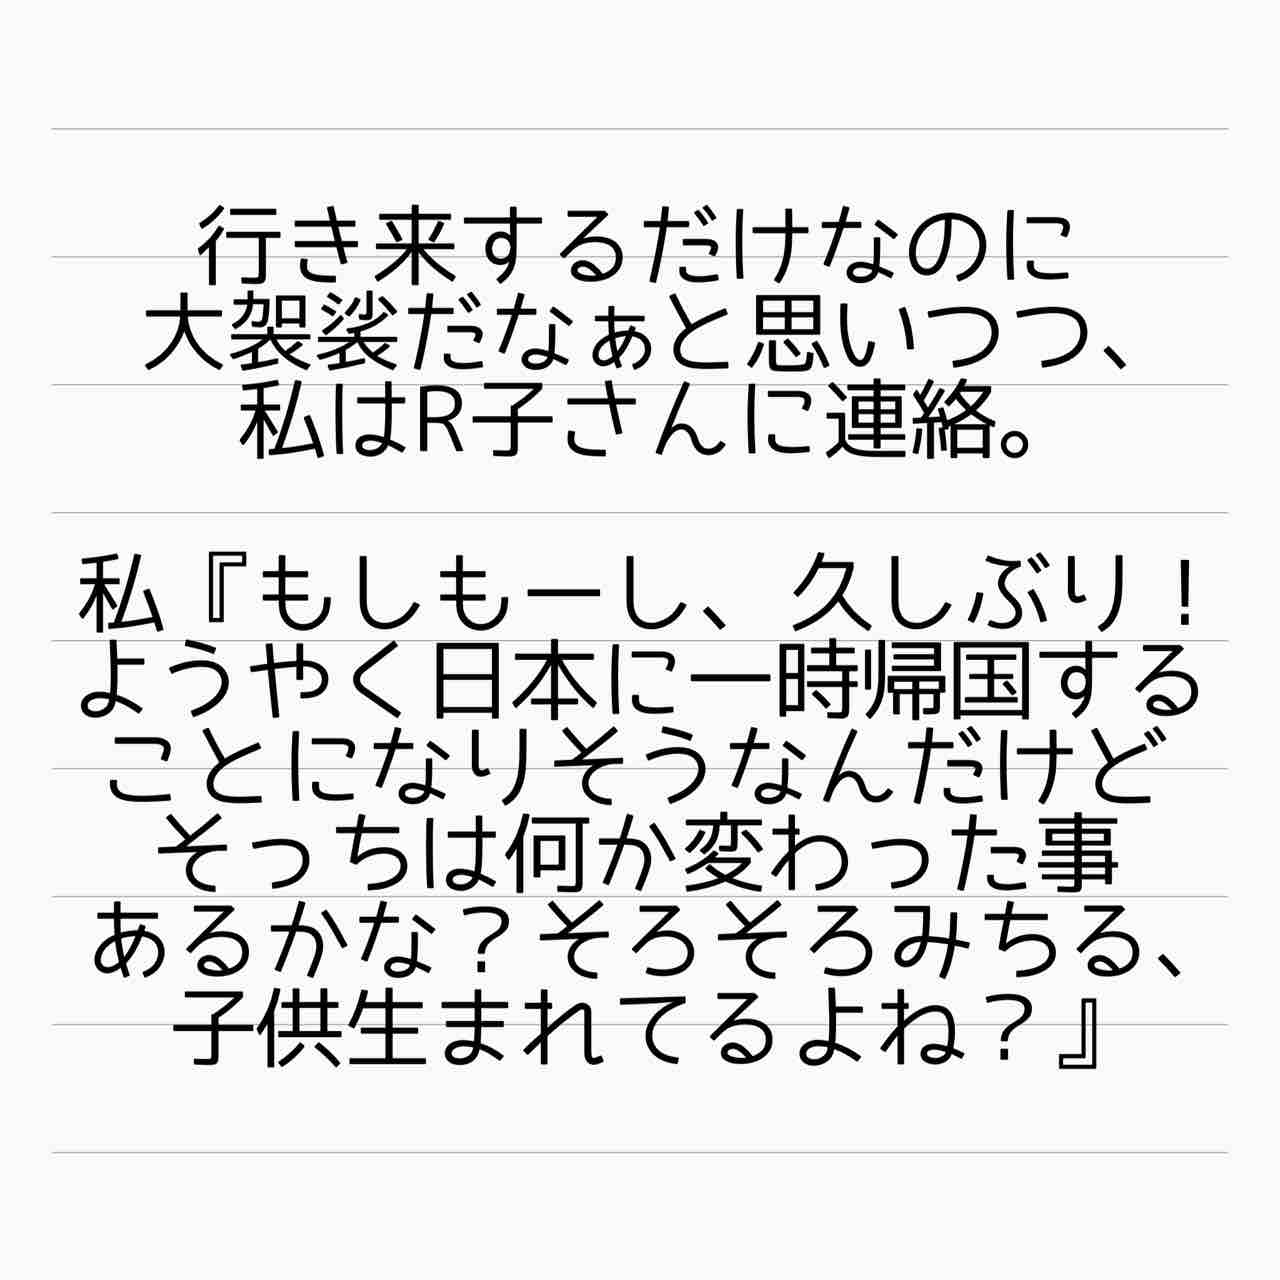 行き来するだけなのに
大袈裟だなぁと思いつつ、
私はR子さんに連絡。
私『もしもーし、久しぶり！
ようやく日本に一時帰国する
ことになりそうなんだけど
そっちは何か変わった事
あるかな？そろそろみちる、
子供生まれてるよね？』